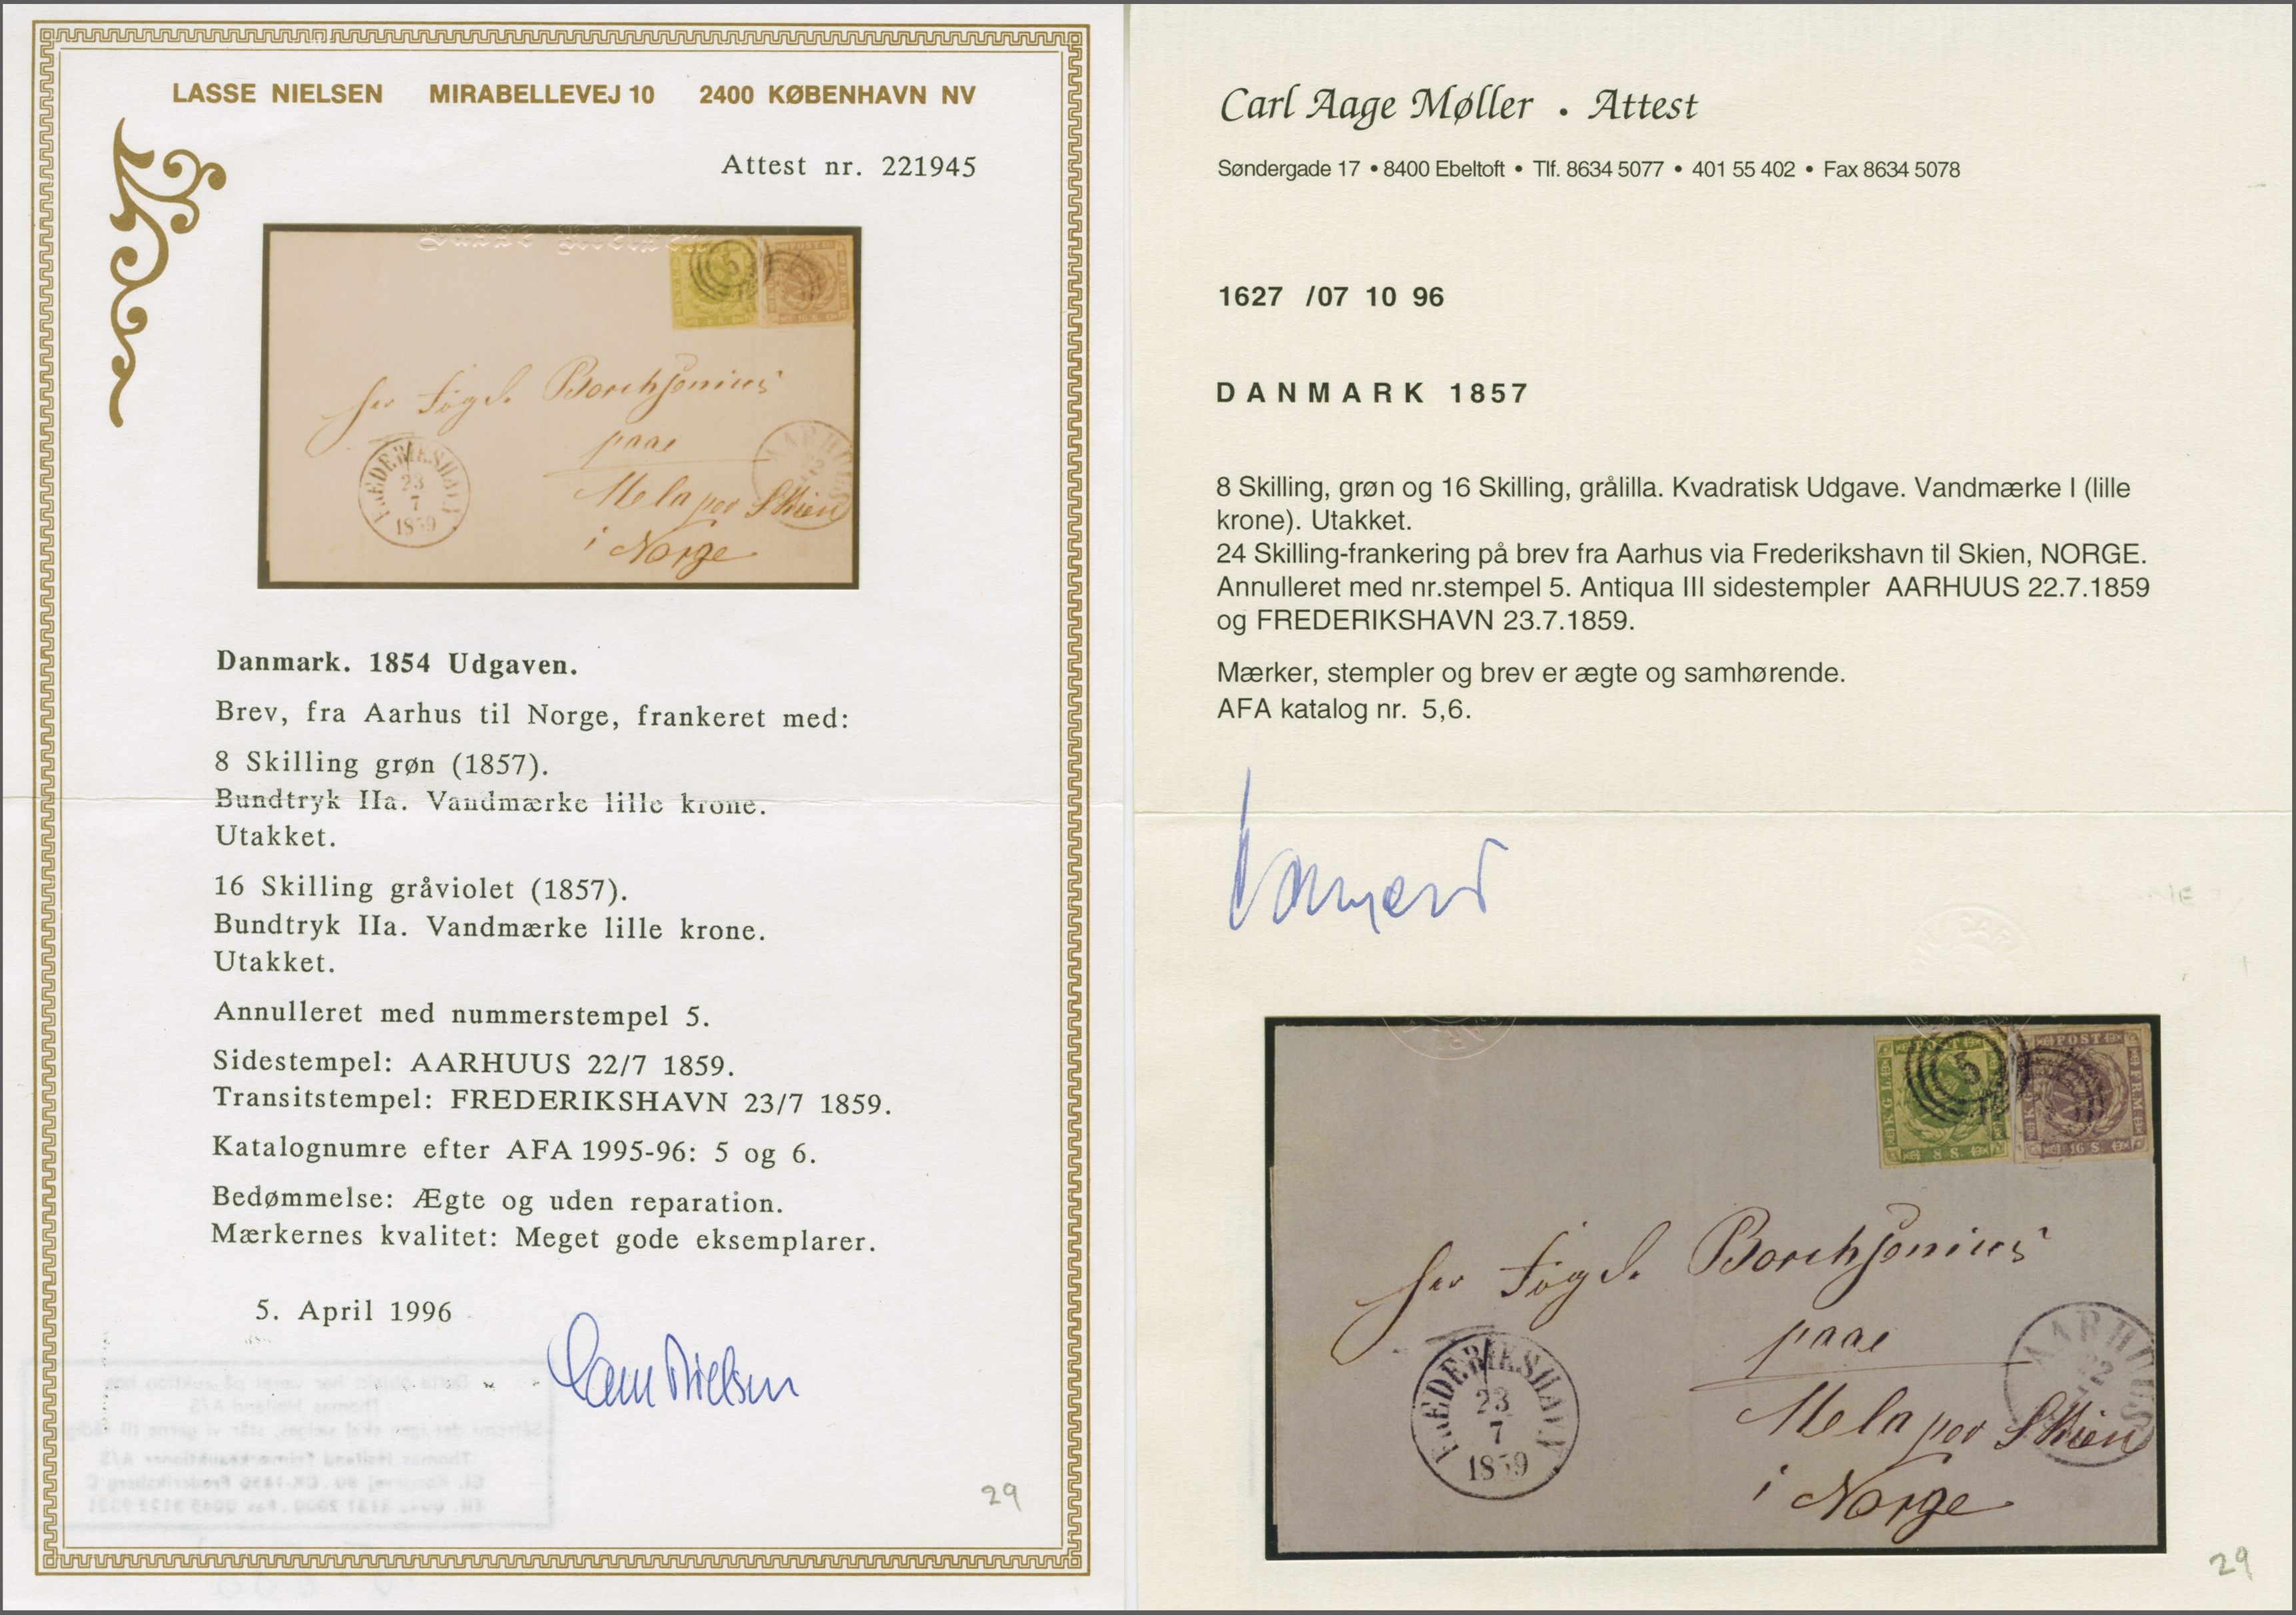 LASSE NIELSEN MIRABELLEVEJ 10 2400 KØBENHAVN NV
Attest nr. 221945
5
POST
16 S.
Borchsenius
paae
Skien
i Norge
FREDERIKSHAVN
23
7
1859
AARHUUS
Danmark. 1854 Udgaven.
Brev, fra Aarhus til Norge, frankeret med:
8 Skilling grøn (1857).
Bundtryk IIa. Vandmærke lille krone.
Utakket.
16 Skilling gråviolet (1857).
Bundtryk IIa. Vandmærke lille krone.
Utakket.
Annulleret med nummerstempel 5.
Sidestempel: AARHUUS 22/7 1859.
Transitstempel: FREDERIKSHAVN 23/7 1859.
Katalognumre efter AFA 1995-96: 5 og 6.
Bedømmelse: Ægte og uden reparation.
Mærkernes kvalitet: Meget gode eksemplarer.
5. April 1996
29
Carl Aage Møller • Attest
Søndergade 17 • 8400 Ebeltoft • Tlf. 8634 5077 • 401 55 402 • Fax 8634 5078
1627 /07 10 96
DANMARK 1857
8 Skilling, grøn og 16 Skilling, grålilla. Kvadratisk Udgave. Vandmærke I (lille
krone). Utakket.
24 Skilling-frankering på brev fra Aarhus via Frederikshavn til Skien, NORGE.
Annulleret med nr.stempel 5. Antiqua III sidestempler AARHUUS 22.7.1859
og FREDERIKSHAVN 23.7.1859.
Mærker, stempler og brev er ægte og samhørende.
AFA katalog nr. 5,6.
POST
KGL
8 S.
5
POST
FRM
16 S.
Borchsenius
paae
Skien
i Norge
FREDERIKSHAVN
23
7
1859
AARHUUS
22
7
29